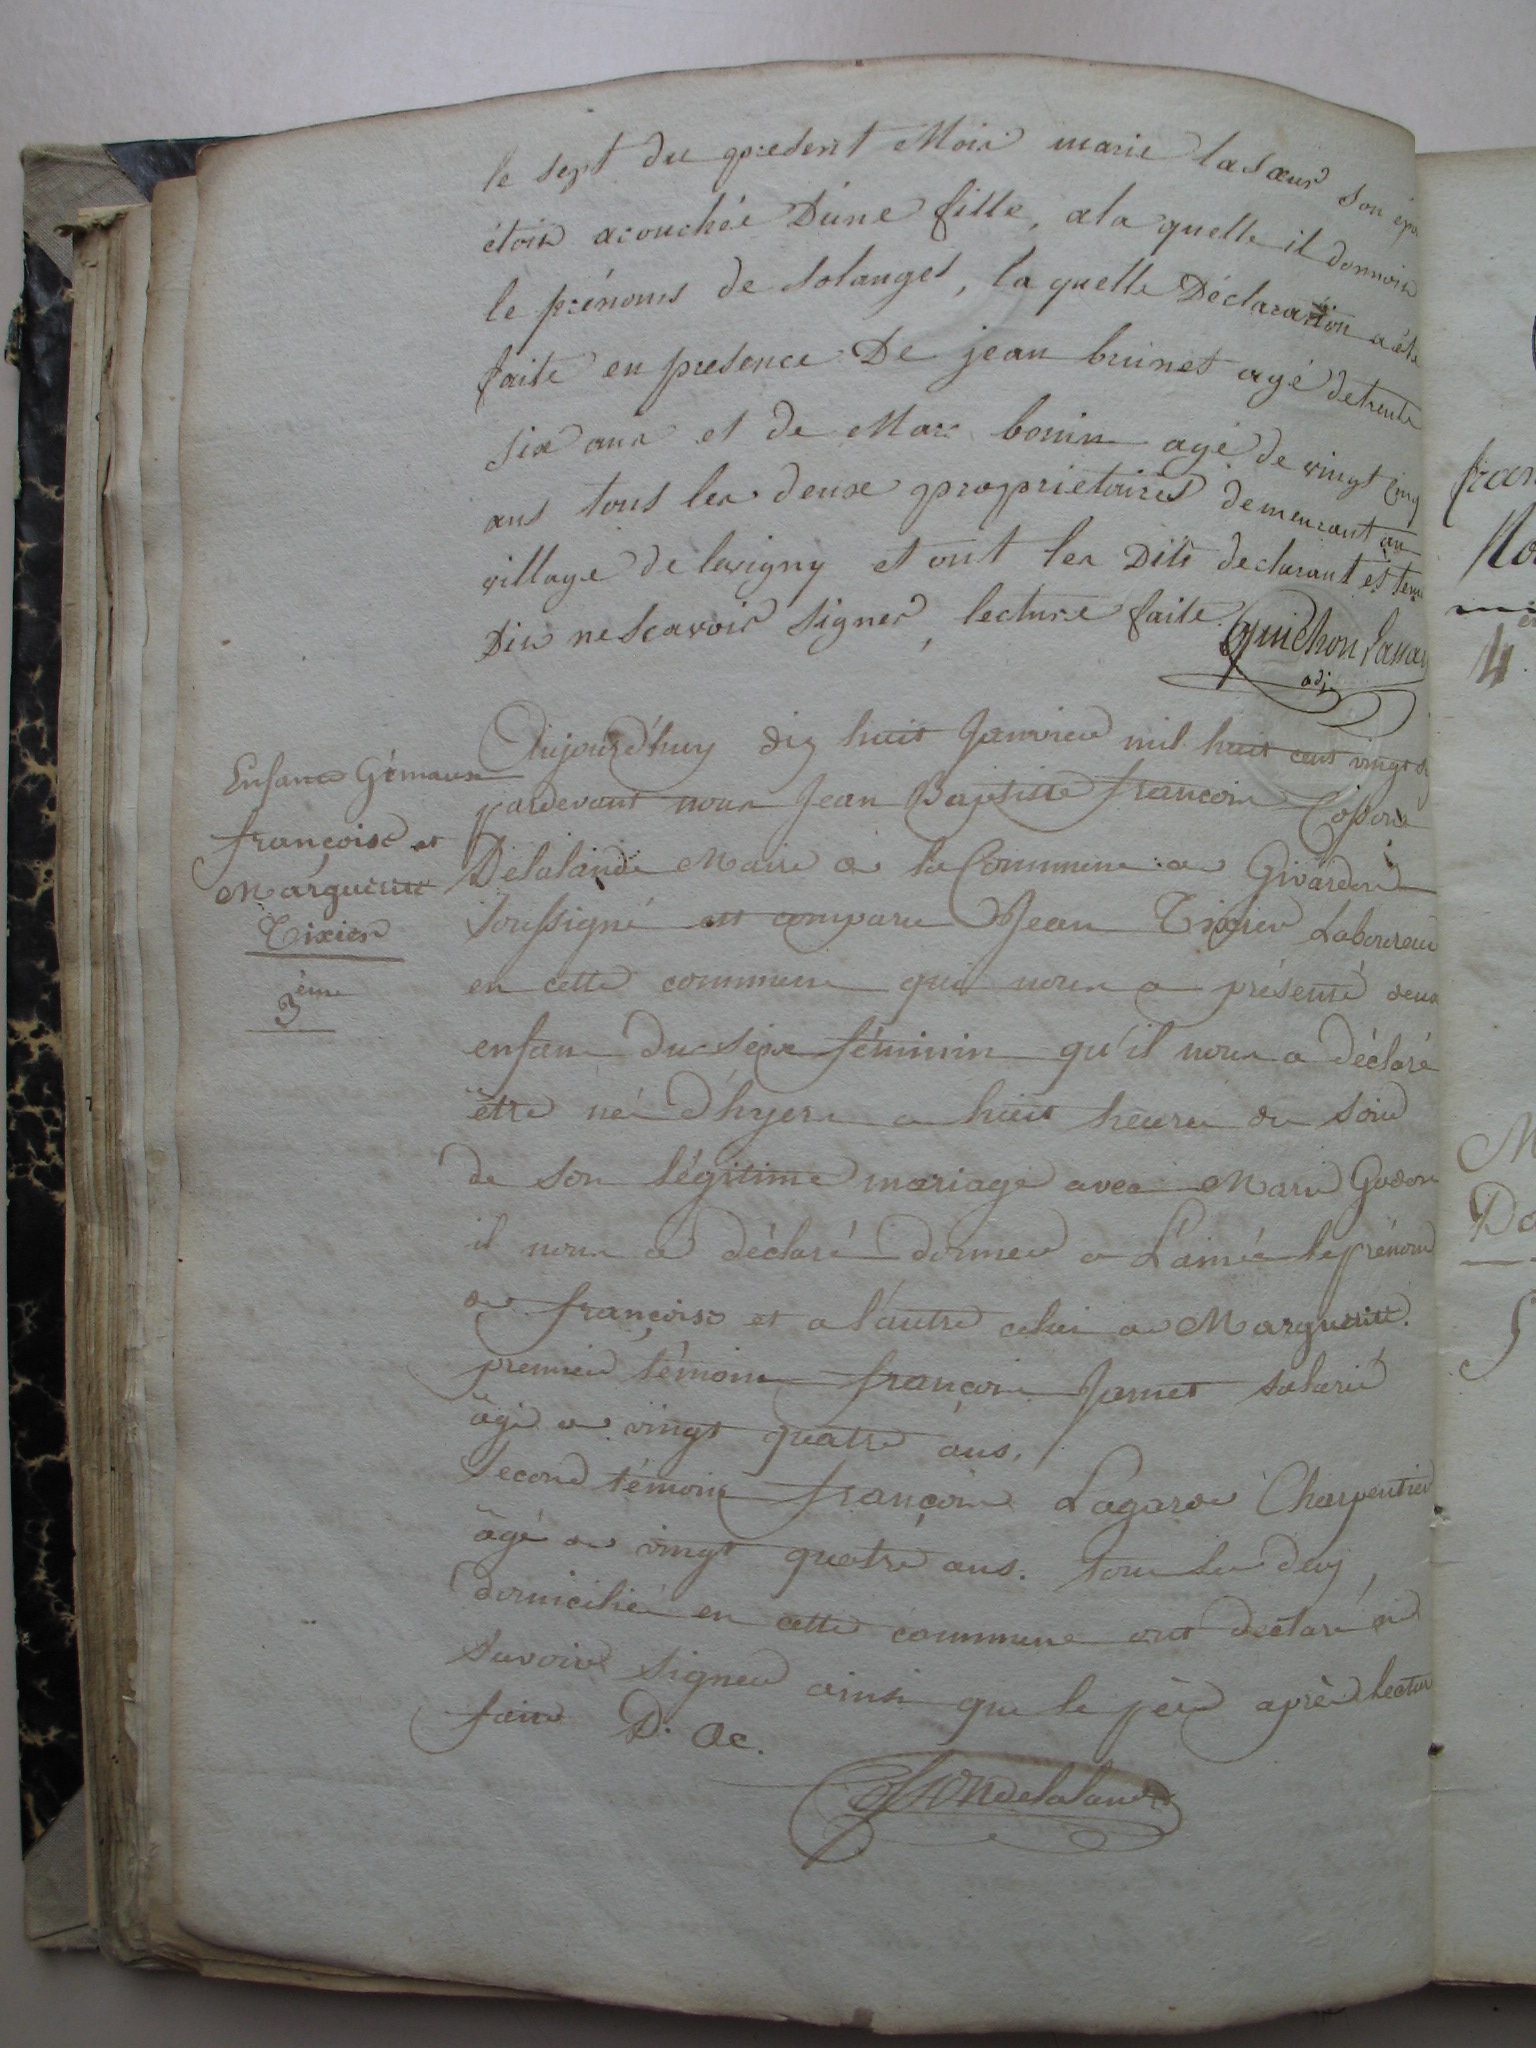 le sept du present Mois marie lasœur son épo
étois acouchée D'une fille, ala quelle il donnois
le prénoms de solanges, la quelle Déclaration a été
faite en presence De jean brinet agé de trente
six ans et de Marc bonin agé de vingt cinq
ans tous les deux proprietaires demeurant au
village de lavigny et ont les Dits declarant et tem
Dis ne scavoir signer, lecture faite. Guichon
adj
Enfans Gémaux
françoise et
Marguerite
Tixier
3ème
Aujourd'huy dix huit Janvier mil huit cent vingt
pardevant nous Jean Baptiste françois Cosson
Delalande Maire de la Commune de Givardon
soussigné est comparu Jean Tixier Laboureur
en cette commune qui nous a présenté deux
enfans du sexe féminin qu'il nous a déclaré
être né d'hyers a huit heures du soir
de son légitime mariage avec Marie Godon
il nous a déclaré donner a L'ainée le prénom
de françoise et a l'autre celui de Marguerite.
premier témoins françois Jamet salarié
âgé de vingt quatre ans.
Second témoins françois Lagarde Charpentier
âgé de vingt quatre ans. tous les deux
domicilié en cette commune ont declaré ne
savoir signer ainsi que le père après lecture
faite D. Ac.
Cossondelalande
fran
4
M